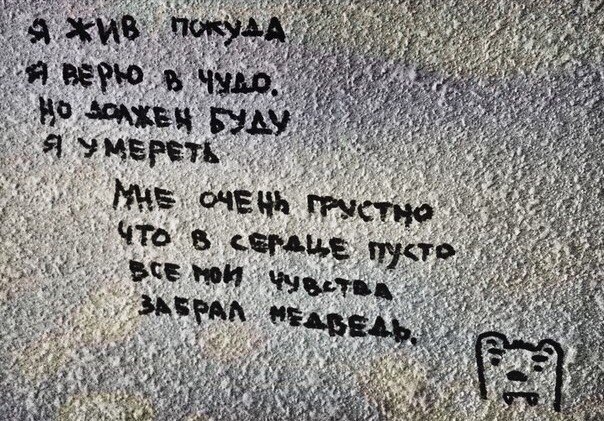 Я ЖИВ ПОКУДА
Я ВЕРЮ В ЧУДО.
НО ДОЛЖЕН БУДУ
Я УМЕРЕТЬ
МНЕ ОЧЕНЬ ГРУСТНО
ЧТО В СЕРДЦЕ ПУСТО
ВСЕ МОИ ЧУВСТВА
ЗАБРАЛ МЕДВЕДЬ.